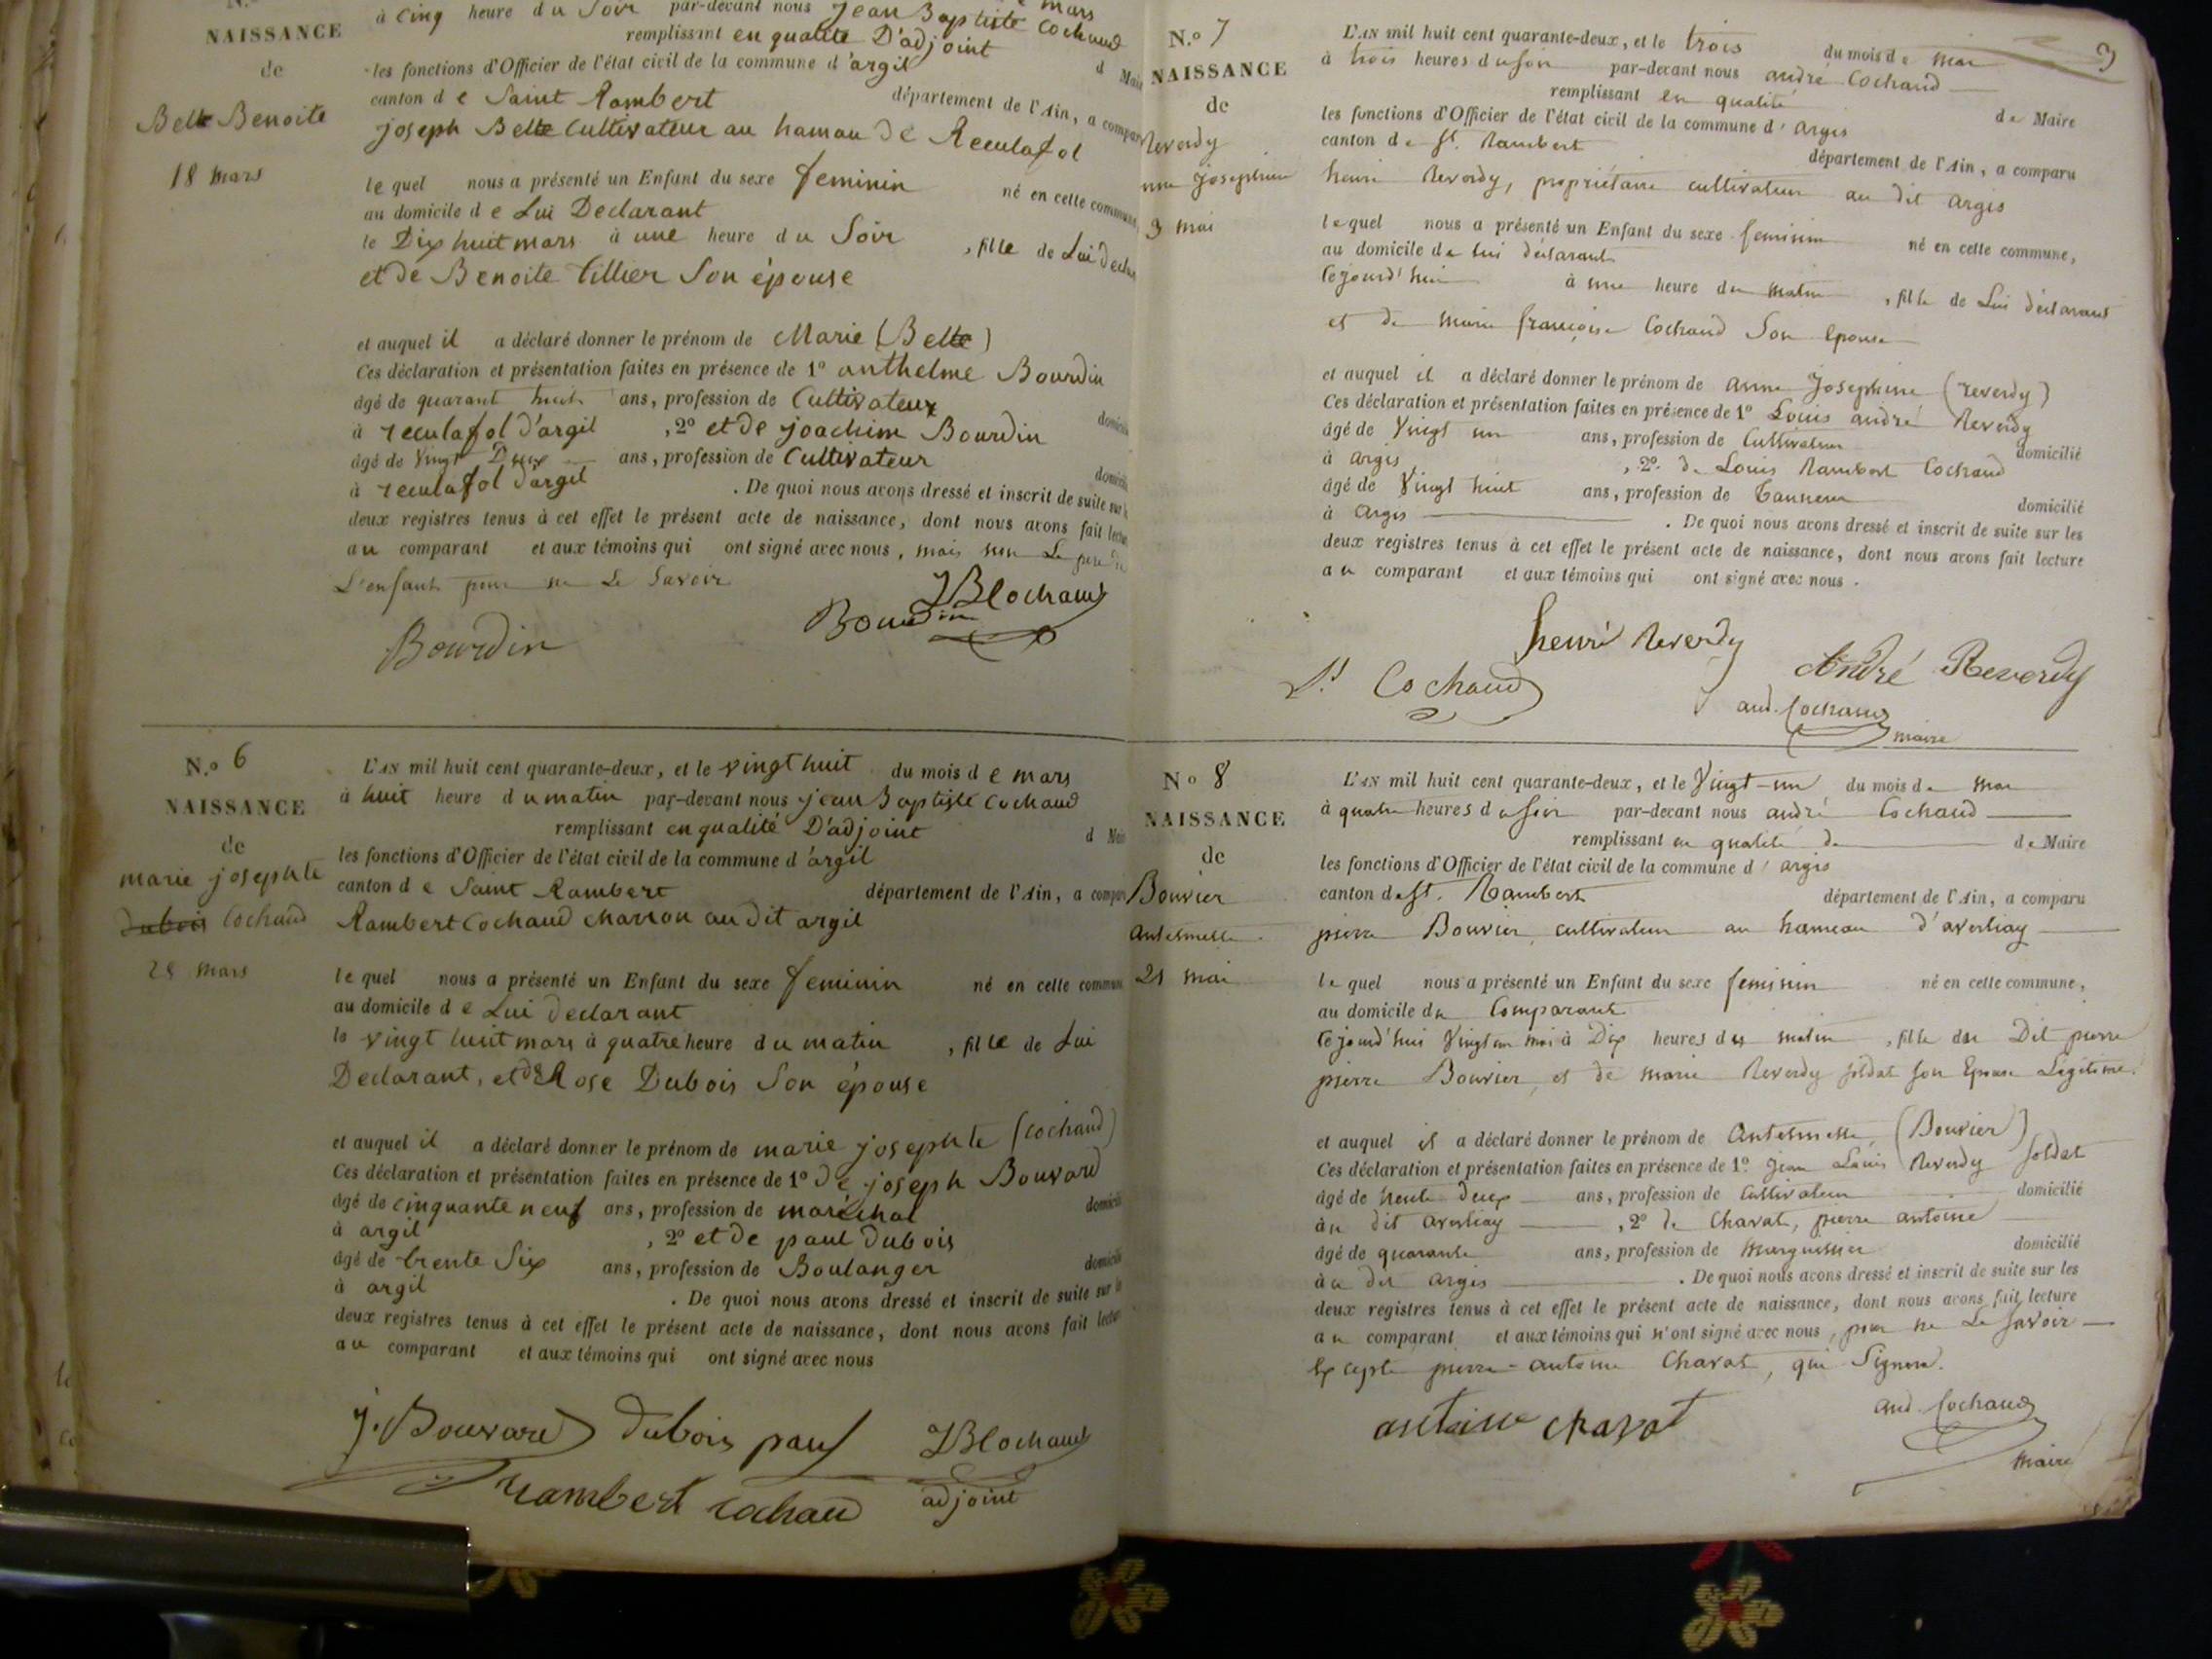 N.o
NAISSANCE
de
Belle Benoite
18 mars
mars
à cinq heure du Soir par-devant nous Jean Baptiste Cochaud
remplissant en qualité D'adjoint
d Maire
les fonctions d'Officier de l'état civil de la commune d'argil
canton de Saint Rambert département de l'Ain, a compar
joseph Belle Cultivateur au hamau de Reculafol
le quel nous a présenté un Enfant du sexe feminin né en cette commune
au domicile de Lui Declarant
le Dix huit mars à une heure du Soir , fille de Lui Declar
et de Benoite tillier Son épouse
et auquel il a déclaré donner le prénom de Marie (Belle)
Ces déclaration et présentation faites en présence de 1o anthelme Bourdin
âgé de quarant huit ans, profession de Cultivateur
à reculafol d'argil , 2o et de joachim Bourdin domicili
âgé de Vingt Deux ans, profession de Cultivateur
à reculafol d'argil . De quoi nous avons dressé et inscrit de suite sur l
deux registres tenus à cet effet le présent acte de naissance, dont nous avons fait lectur
au comparant et aux témoins qui ont signé avec nous, mais non Le pere de
L'enfant pour ne Le Savoir
JBCochaud
Bourdin
Bourdin
N.o 6
NAISSANCE
de
marie josephte
dubois Cochaud
28 mars
L'AN mil huit cent quarante-deux, et le vingt huit du mois de mars
à huit heure du matin par-devant nous jean Baptiste Cochaud
remplissant en qualité D'adjoint d Mair
les fonctions d'Officier de l'état civil de la commune d'argil
canton de Saint Rambert département de l'Ain, a compar
Rambert Cochaud charron au dit argil
le quel nous a présenté un Enfant du sexe feminin né en cette commun
au domicile de Lui declarant
le vingt huit mars à quatre heure du matin , fille de Lui
Declarant, et de Rose Dubois Son épouse
et auquel il a déclaré donner le prénom de marie josephte (cochaud)
Ces déclaration et présentation faites en présence de 1o De joseph Bouvard
âgé de cinquante neuf ans, profession de maréchal domicili
à argil , 2o et de paul dubois
âgé de trente Six ans, profession de Boulanger domicili
à argil . De quoi nous avons dressé et inscrit de suite sur le
deux registres tenus à cet effet le présent acte de naissance, dont nous avons fait lectur
au comparant et aux témoins qui ont signé avec nous
j. Bouvard dubois paul JBCochaud
rambert cochau adjoint
3
N.o 7
NAISSANCE
de
Reverdy
anne Josephine
3 mai
L'AN mil huit cent quarante-deux, et le trois du mois de mai
à trois heures du soir par-devant nous andré Cochaud
remplissant en qualité de Maire
les fonctions d'Officier de l'état civil de la commune d'argis
canton de St. Rambert département de l'Ain, a comparu
henri Reverdy, propriétaire cultivateur au dit argis
lequel nous a présenté un Enfant du sexe feminin né en cette commune,
au domicile de lui déclarant
cejourd'hui à une heure du matin , fille de Lui déclarant
et de marie françoise Cochaud Son Epouse
et auquel il a déclaré donner le prénom de anne Josephine (reverdy)
Ces déclaration et présentation faites en présence de 1o Louis andré Reverdy
âgé de Vingt un ans, profession de Cultivateur domicilié
à argis , 2o de Louis Rambert Cochaud
âgé de Vingt huit ans, profession de Tanneur domicilié
à argis . De quoi nous avons dressé et inscrit de suite sur les
deux registres tenus à cet effet le présent acte de naissance, dont nous avons fait lecture
au comparant et aux témoins qui ont signé avec nous.
henri Reverdy
Cochaud André Reverdy
and. Cochaud
maire
No 8
NAISSANCE
de
Bouvier
Antelmette
21 mai
L'AN mil huit cent quarante-deux, et le Vingt-un du mois de mai
à quatre heures du soir par-devant nous andré Cochaud
remplissant en qualité de de Maire
les fonctions d'Officier de l'état civil de la commune d'argis
canton de St. Rambert département de l'Ain, a comparu
pierre Bouvier cultivateur au hameau d'averliay
lequel nous a présenté un Enfant du sexe feminin né en cette commune,
au domicile du Comparant
cejourd'hui Vingt un mai à Dix heures du matin , fille du Dit pierre
pierre Bouvier, et de marie Reverdy soldat son Epouse Légitime.
et auquel il a déclaré donner le prénom de Antelmette, (Bouvier)
Ces déclaration et présentation faites en présence de 1o jean Louis Reverdy soldat
âgé de trente deux ans, profession de cultivateur domicilié
au dit averliay , 2o de Chavat, pierre antoine
âgé de quarante ans, profession de domicilié
au dit argis . De quoi nous avons dressé et inscrit de suite sur les
deux registres tenus à cet effet le présent acte de naissance, dont nous avons fait lecture
au comparant et aux témoins qui n'ont signé avec nous, pour ne Le savoir
Excepté pierre-antoine Chavat, qui Signera.
antoine chavat
and. Cochaud
maire